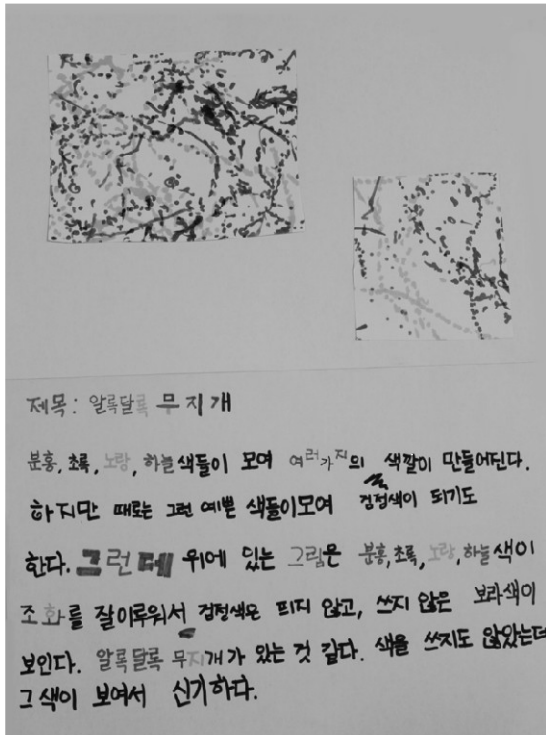 제목: 알록달록 무지개
분홍, 초록, 노랑, 하늘색들이 모여 여러가지의 색깔이 만들어딘다.
하지만 때로는 그런 예쁜 색들이모여 검정색이 되기도
한다. 그런데 위에 있는 그림은 분홍,초록,노랑,하늘색이
조화를 잘이루워서 검정색은 띄지 않고, 쓰지 않은 보라색이
보인다. 알록달록 무지개가 있는 것 같다. 색을 쓰지도 않았는데
그색이 보여서 신기하다.